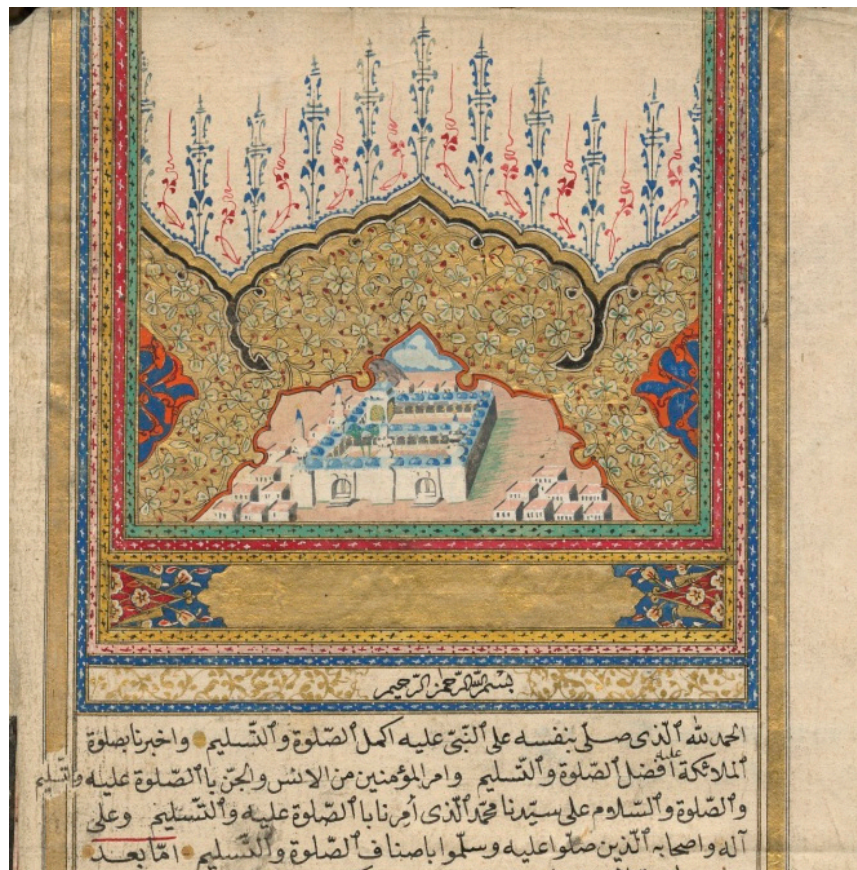 بسم الله الرحمن الرحيم
الحمد لله ٱلّذى صلّى بنفسه على ٱلنّبىّ عليه اكمل ٱلصّلوة وٱلتّسليم واخبرنا بصلوة
ٱلملائكة عليه افضل ٱلصّلوة وٱلتّسليم وامر المؤمنين من الانس والجنّ باٱلصّلوة عليه وٱلتّسليم
وٱلصّلوة وٱلسّلام على سيّدنا محمّد ٱلّذى أمرنا باٱلصّلوة عليه وٱلتّسليم وعلى
آله واصحابه ٱلّذين صلّوا عليه وسلّموا باصناف ٱلصّلوة وٱلتّسليم امّا بعد